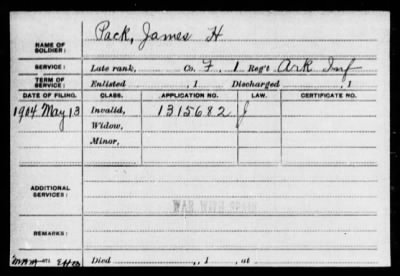 Pack, James H
NAME OF SOLDIER:
SERVICE: Late rank, Co. F, 1 Reg't Ark Inf
TERM OF SERVICE: Enlisted , 1 Discharged , 1
DATE OF FILING. CLASS. APPLICATION NO. LAW. CERTIFICATE NO.
1904 May 13 Invalid, 1315682 J
Widow,
Minor,
ADDITIONAL SERVICES:
REMARKS:
Died , 1 , at